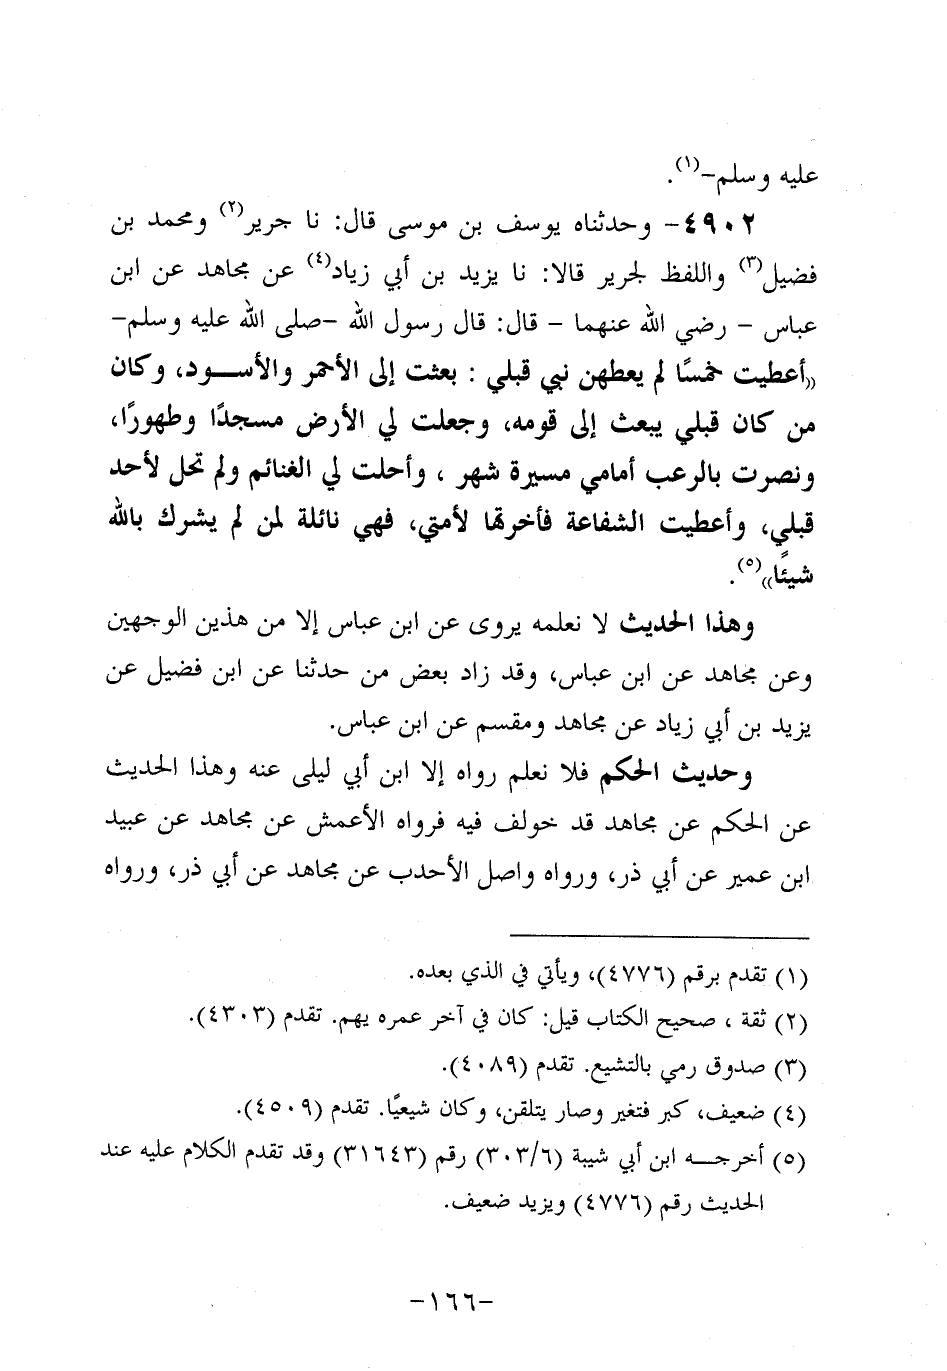 عليه وسلم-(١).
٤٩٠٢- وحدثناه يوسف بن موسى قال: نا جرير(٢) ومحمد بن
فضيل(٣) واللفظ لجرير قالا: نا يزيد بن أبي زياد(٤) عن مجاهد عن ابن
عباس - رضي الله عنهما - قال: قال رسول الله -صلى الله عليه وسلم-
((أعطيت خمسًا لم يعطهن نبي قبلي : بعثت إلى الأحمر والأســود، وكان
من كان قبلي يبعث إلى قومه، وجعلت لي الأرض مسجدًا وطهورًا،
ونصرت بالرعب أمامي مسيرة شهر ، وأحلت لي الغنائم ولم تحل لأحد
قبلي، وأعطيت الشفاعة فأخرتها لأمتي، فهي نائلة لمن لم يشرك بالله
شيئًا))(٥).
وهذا الحديث لا نعلمه يروى عن ابن عباس إلا من هذين الوجهين
وعن مجاهد عن ابن عباس، وقد زاد بعض من حدثنا عن ابن فضيل عن
يزيد بن أبي زياد عن مجاهد ومقسم عن ابن عباس.
وحديث الحكم فلا نعلم رواه إلا ابن أبي ليلى عنه وهذا الحديث
عن الحكم عن مجاهد قد خولف فيه فرواه الأعمش عن مجاهد عن عبيد
ابن عمير عن أبي ذر، ورواه واصل الأحدب عن مجاهد عن أبي ذر، ورواه
(١) تقدم برقم (٤٧٧٦)، ويأتي في الذي بعده.
(٢) ثقة ، صحيح الكتاب قيل: كان في آخر عمره يهم. تقدم (٤٣٠٣).
(٣) صدوق رمي بالتشيع. تقدم (٤٠٨٩).
(٤) ضعيف، كبر فتغير وصار يتلقن، وكان شيعيًا. تقدم (٤٥٠٩).
(٥) أخرجــه ابن أبي شيبة (٣٠٣/٦) رقم (٣١٦٤٣) وقد تقدم الكلام عليه عند
الحديث رقم (٤٧٧٦) ويزيد ضعيف.
-١٦٦-